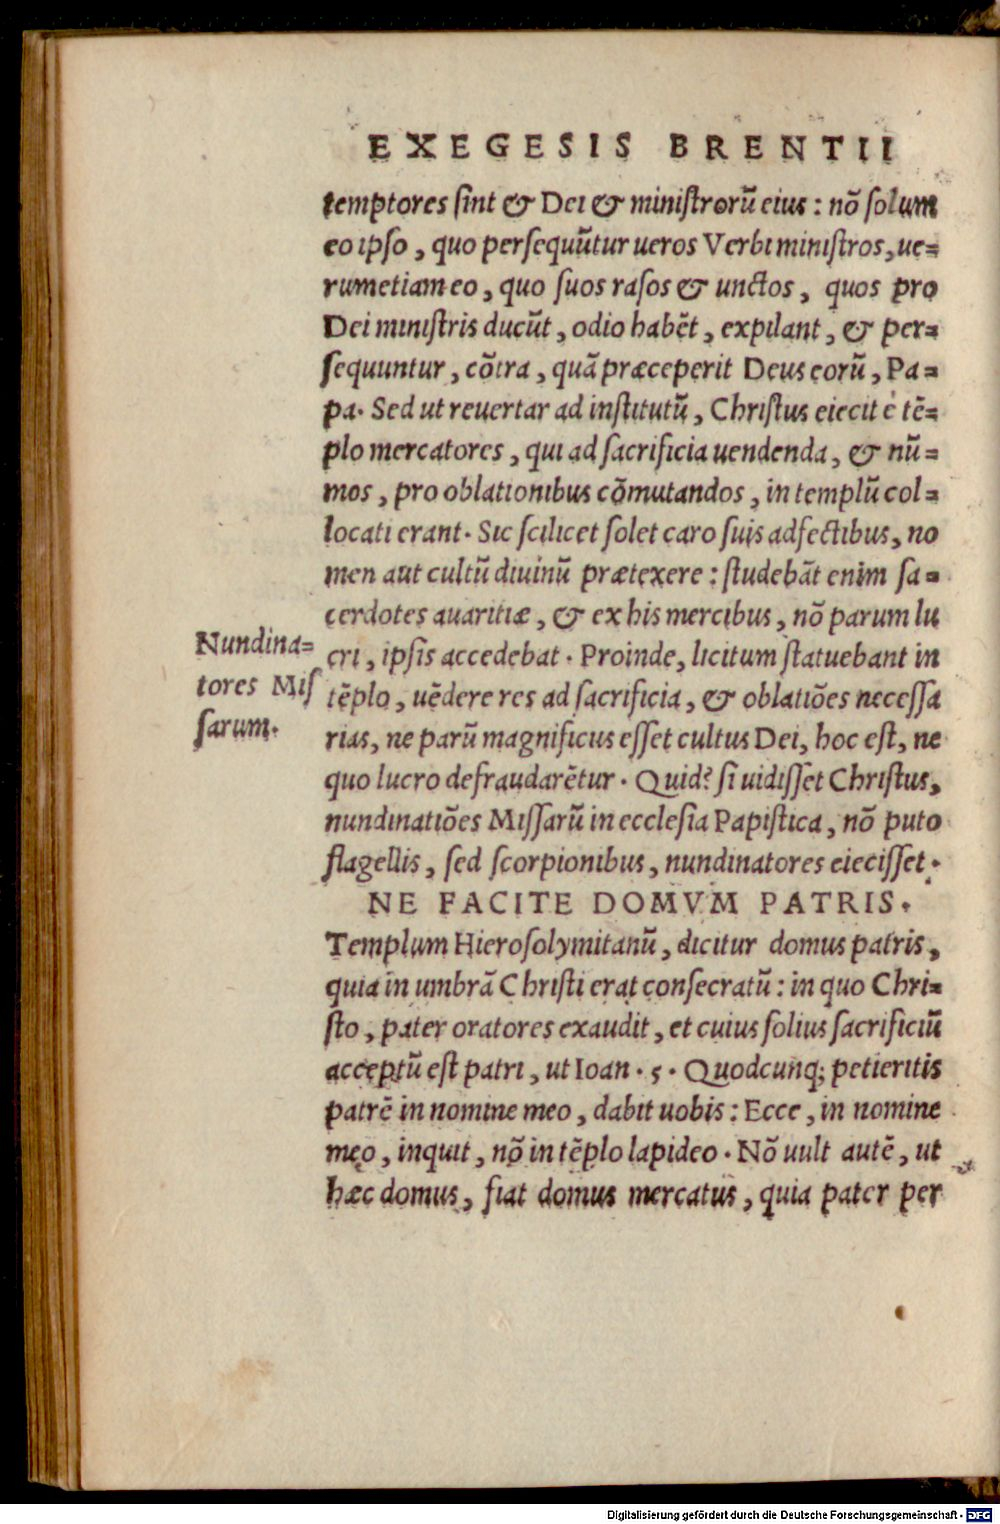 EXEGESIS BRENTII
temptores sint & Dei & ministrorũ eius : nõ solum
eo ipso , quo persequũtur ueros Verbi ministros, ue=
rumetiam eo , quo suos rasos & unctos , quos pro
Dei ministris ducũt , odio habẽt , expilant , & per=
sequuntur , cõtra , quã præceperit Deus eorũ , Pa=
pa. Sed ut reuertar ad institutũ , Christus eiecit è tẽ=
plo mercatores , qui ad sacrificia uendenda , & nũ=
mos , pro oblationibus cõmutandos , in templũ col=
locati erant. Sic scilicet solet caro suis adfectibus, no
men aut cultũ diuinũ prætexere : studebãt enim sa=
cerdotes auaritiæ , & ex his mercibus , nõ parum lu
Nundina=
tores Mis
sarum.
cri , ipsis accedebat . Proinde, licitum statuebant in
tẽplo , uẽdere res ad sacrificia , & oblatiões necessa
rias, ne parũ magnificus esset cultus Dei, hoc est, ne
quo lucro defraudarẽtur . Quid? si uidisset Christus,
nundinatiões Missarũ in ecclesia Papistica , nõ puto
flagellis , sed scorpionibus , nundinatores eiecisset .
NE FACITE DOMVM PATRIS.
Templum Hierosolymitanũ , dicitur domus patris,
quia in umbrã Christi erat consecratũ : in quo Chri=
sto , pater oratores exaudit , et cuius solius sacrificiũ
acceptũ est patri , ut Ioan . 5 . Quodcunq; petieritis
patrẽ in nomine meo , dabit uobis : Ecce , in nomine
meo , inquit , nõ in tẽplo lapideo . Nõ uult autẽ , ut
hæc domus, fiat domus mercatus , quia pater per
Digitalisierung gefördert durch die Deutsche Forschungsgemeinschaft - DFG